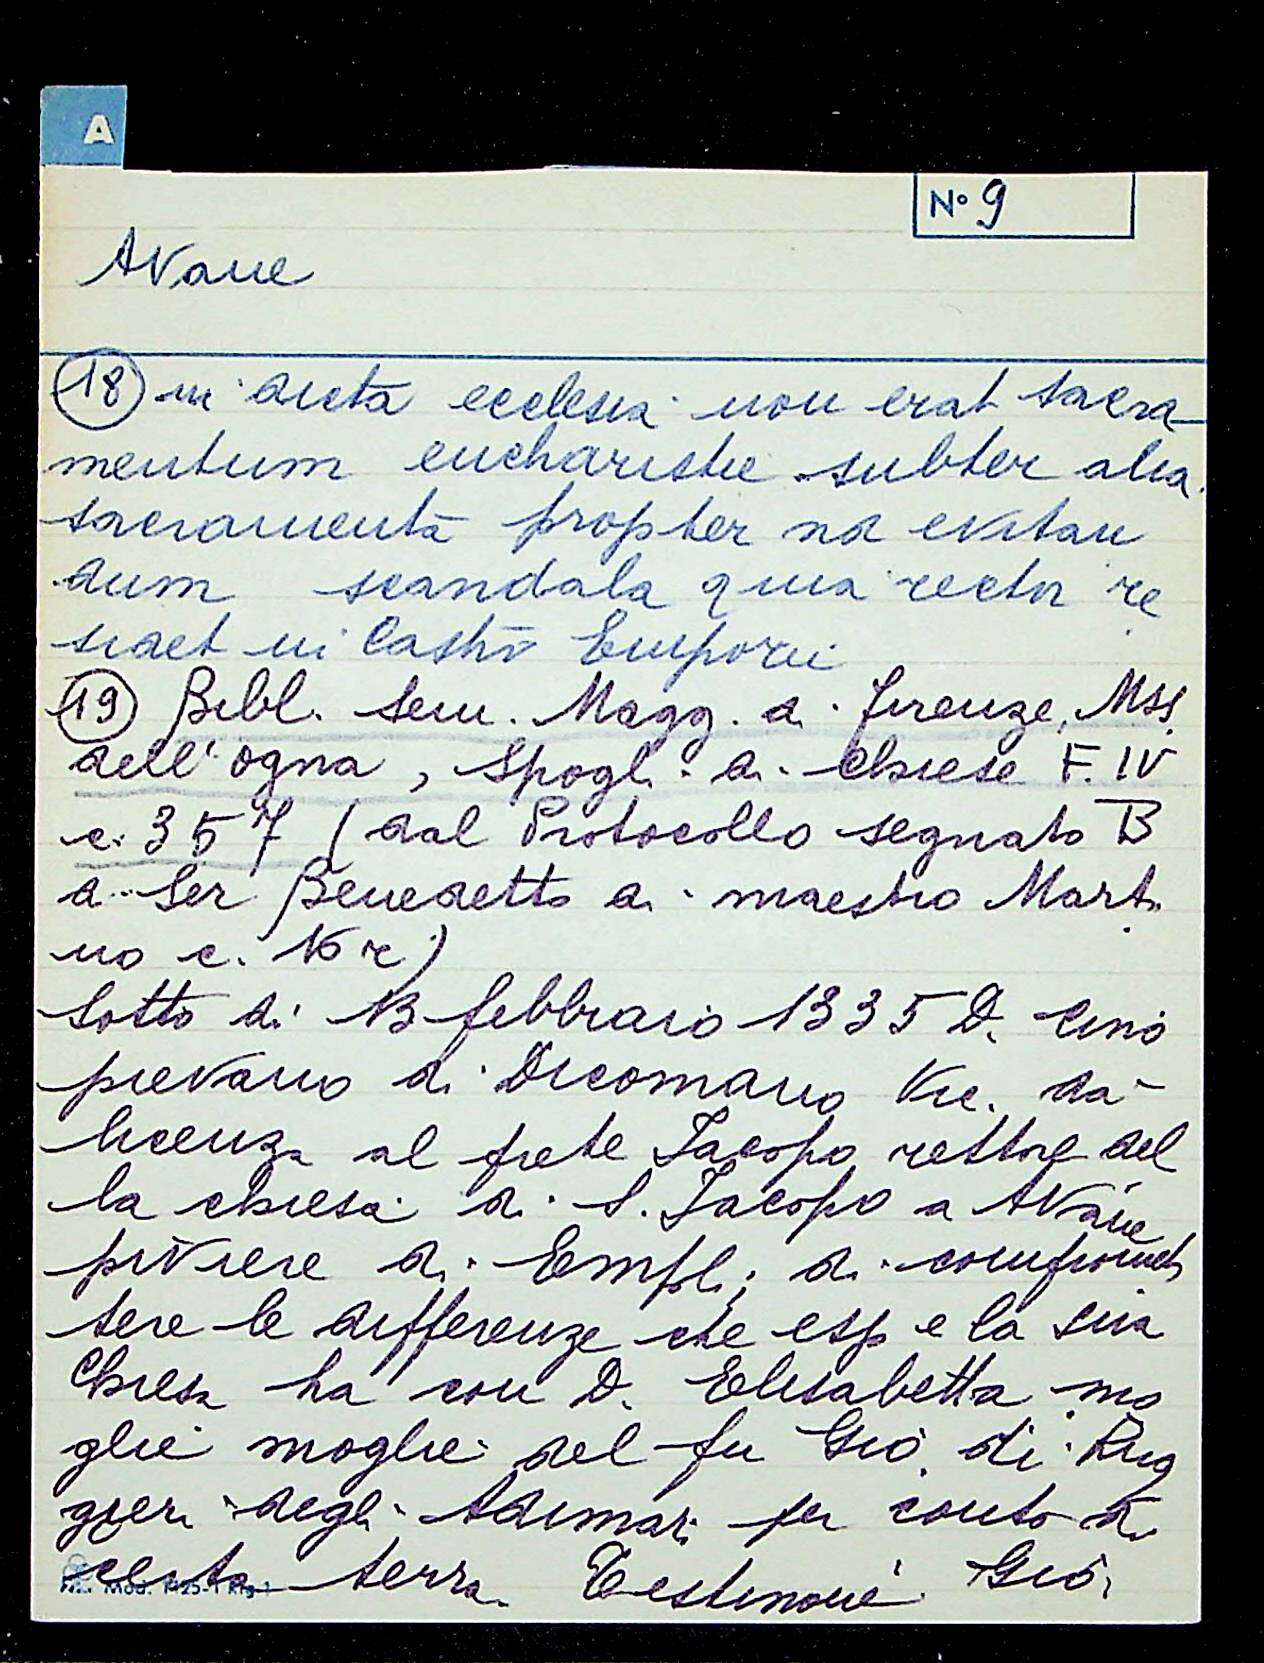 A
N° 9
Avane
18 in dicta ecclesia non erat sacra-
mentum eucharistie subter alia
sacramentā propter ad evitan
dum scandala quia rector re
sidet in Castrō Emporii
19 Bibl. Sem. Magg. di Firenze, Mss.
dell'Ogna, Spogli di Chiese F. IV
c. 357 (dal Protocollo segnato B
di Ser Benedetto di maestro Marti
no c. 16 r)
Sotto dì 13 febbraio 1335 D. Cino
pievano di Dicomano Vic. dà
licenza al prete Jacopo rettore del
la chiesa di S. Jacopo a Avane
piviere di Empoli; di compromet
tere le differenze che esso e la sua
Chiesa ha con D. Elisabetta mo
glie moglie del fu Giò. di Rug
gieri degli Adimari per conto di
certa terra. Testimoni Giò.